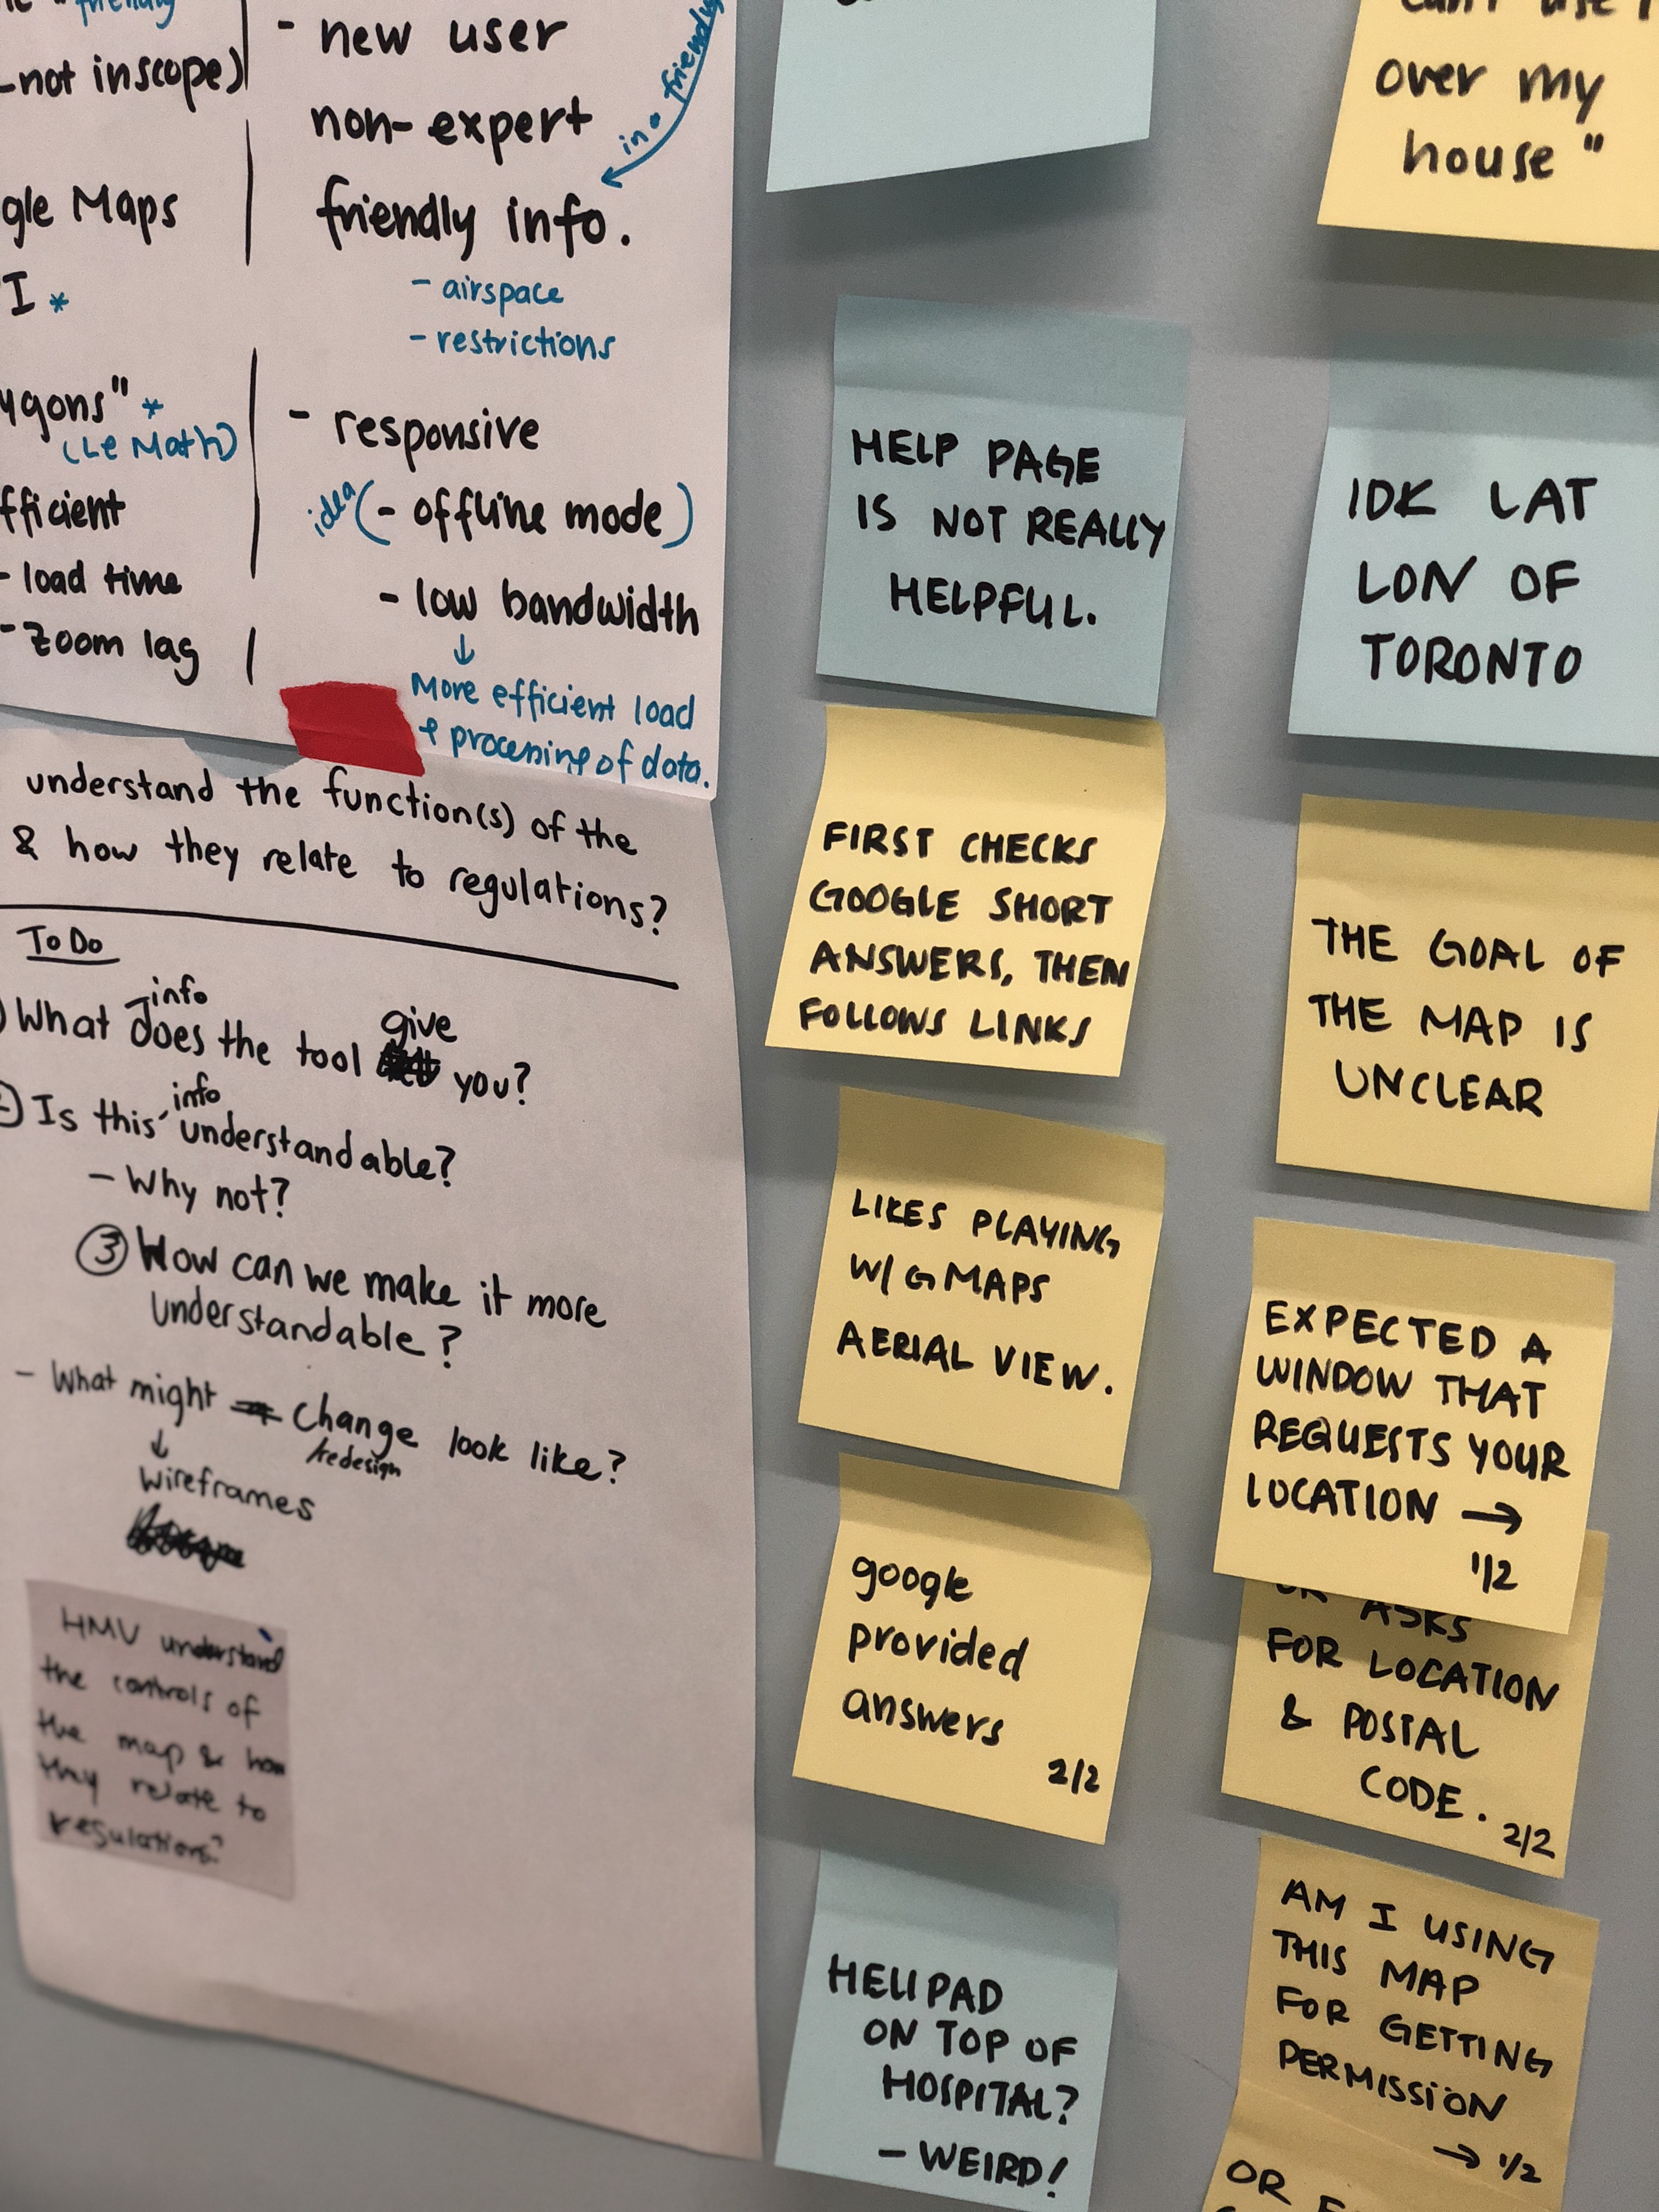 friendly
-not inscope)
gle Maps
I *
ygons" *
(Le Math)
fficient
- load time
- zoom lag
- new user
non-expert
in a friendly
friendly info.
- airspace
- restrictions
- responsive
idea (- offline mode)
- low bandwidth
↓
More efficient load
+ processing of data.
understand the function(s) of the
& how they relate to regulations?
To Do
What info does the tool give you?
Is this info understandable?
- Why not?
③ How can we make it more
understandable?
- What might change look like?
/redesign
↓
wireframes
HMV understand
the controls of
the map & how
they relate to
regulations?
HELP PAGE
IS NOT REALLY
HELPFUL.
FIRST CHECKS
GOOGLE SHORT
ANSWERS, THEN
FOLLOWS LINKS
LIKES PLAYING
W/ GMAPS
AERIAL VIEW.
google
provided
answers
2/2
HELIPAD
ON TOP OF
HOSPITAL?
- WEIRD!
can't use
over my
house"
IDK LAT
LON OF
TORONTO
THE GOAL OF
THE MAP IS
UNCLEAR
EXPECTED A
WINDOW THAT
REQUESTS YOUR
LOCATION →
1/2
OR ASKS
FOR LOCATION
& POSTAL
CODE.
2/2
AM I USING
THIS MAP
FOR GETTING
PERMISSION
→ 1/2
OR